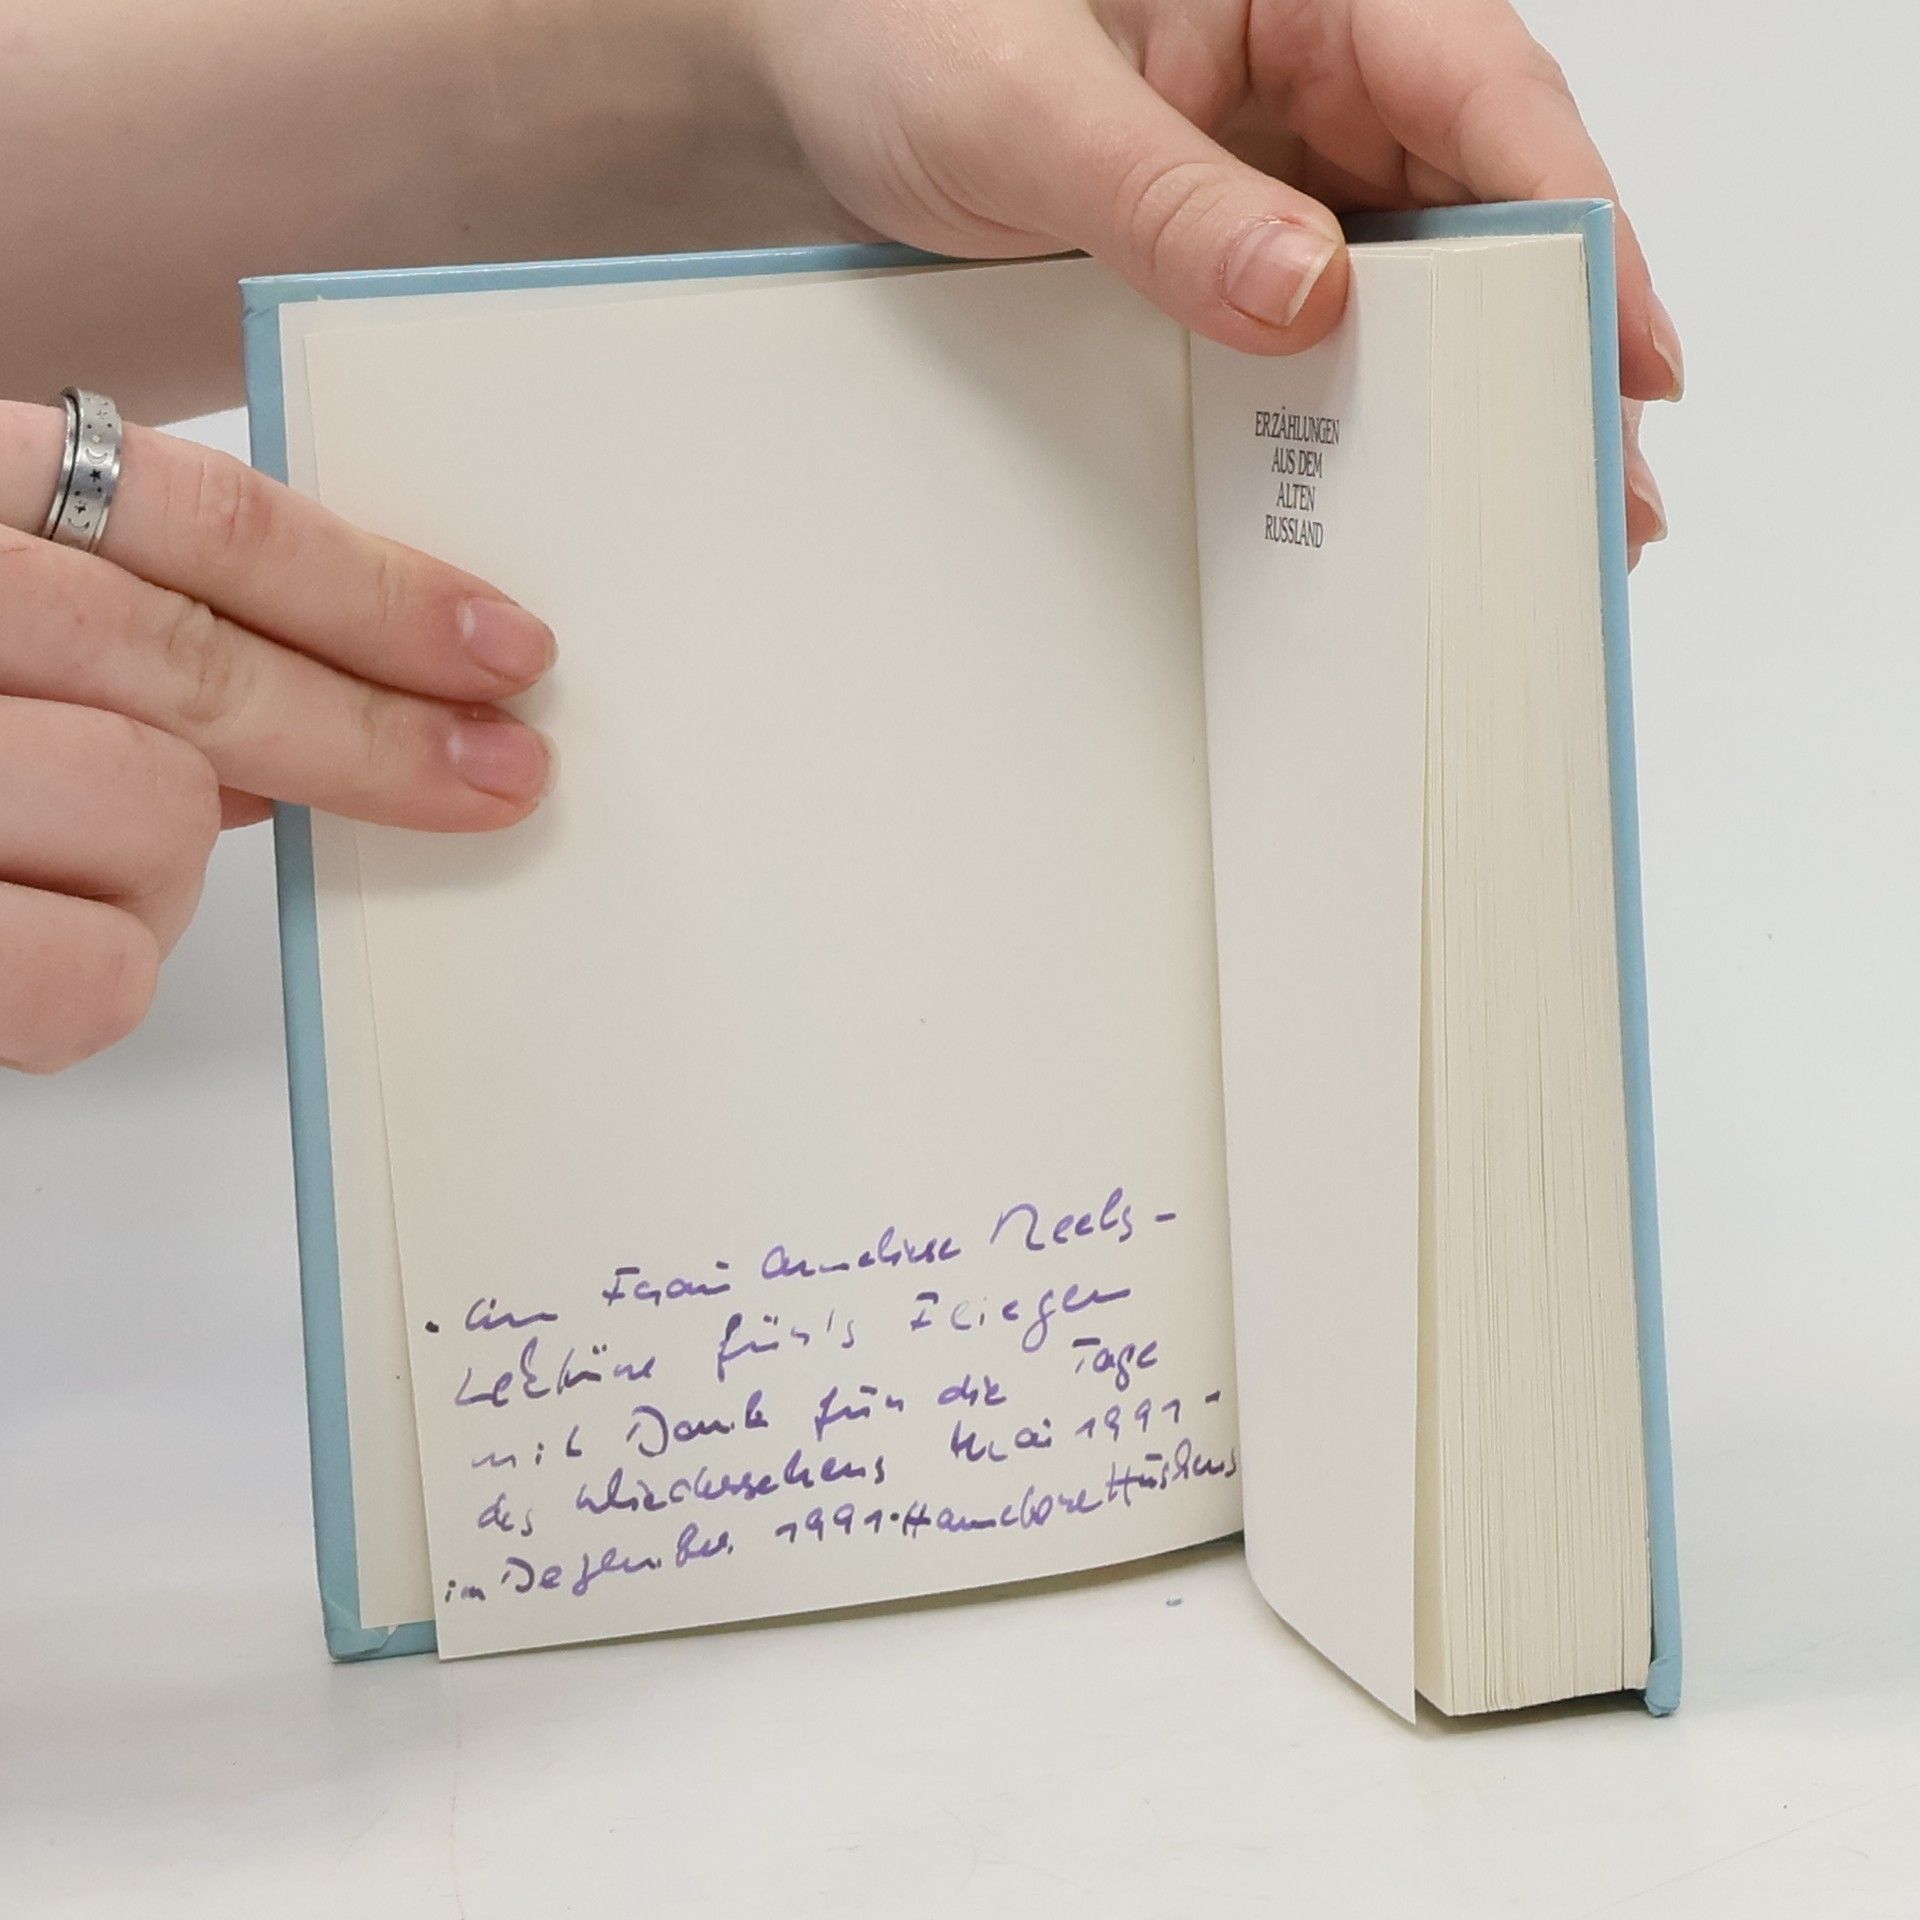 An Frau Anneliese
Lektüre für's Fliegen
mit Dank für die Tage
des Wiedersehens Mai 1991 -
im Dezember 1991 · Hannelore
ERZÄHLUNGEN
AUS DEM
ALTEN
RUSSLAND